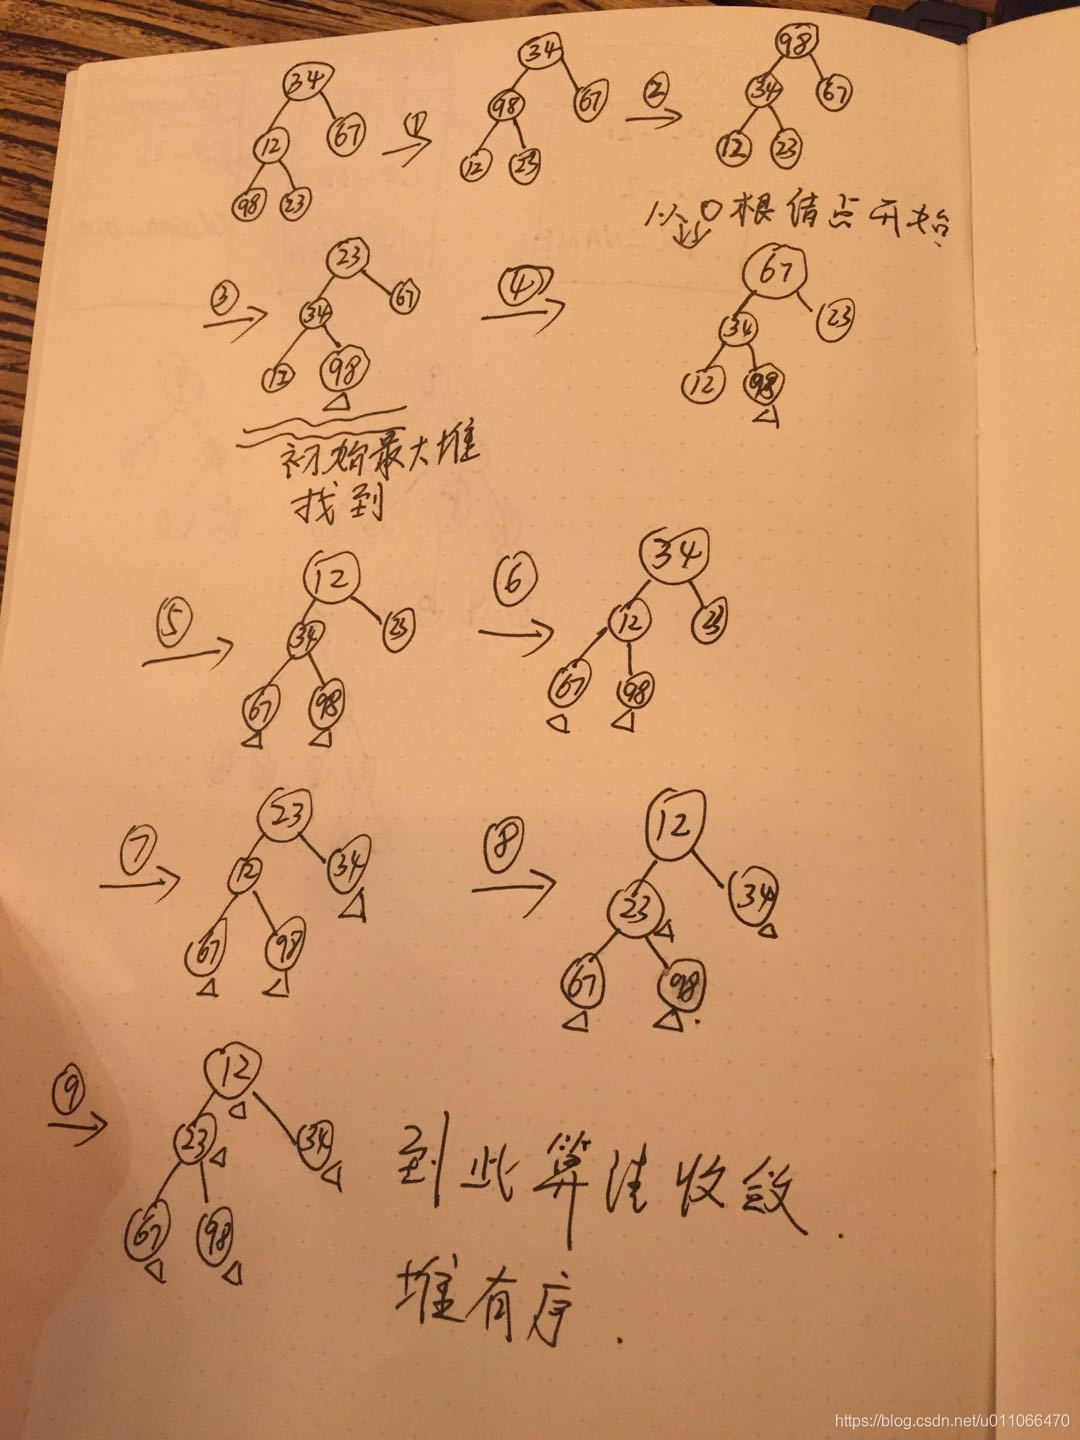 34
12 67
98 23
①
34
98 67
12 23
②
98
34 67
12 23
③
23
34 67
12 98
初始最大堆
找到
④
从0根结点开始
67
34 23
12 98
⑤
12
34 23
67 98
⑥
34
12 23
67 98
⑦
23
12 34
67 98
⑧
12
23 34
67 98
⑨
12
23 34
67 98
到此算法收敛.
堆有序.
https://blog.csdn.net/u011066470